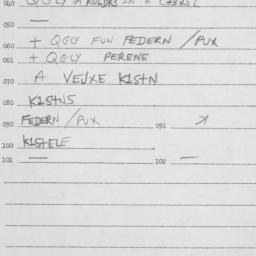 040
050 —
060 + QGLY FUN FEDERN / PUX
061 + QGLY PERENE
070 A VEJXE K1StN
080 K1StNS
090 FEDERN / PUX 091
100 K1StELE
101 — 102 —